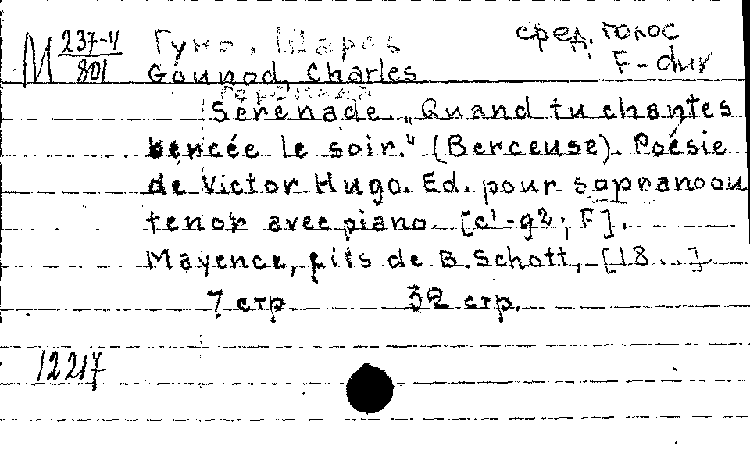 М 237-4/801
Гуно, Шарль
сред. голос
F-dur
Gounod, Charles
Серенада
Serenade. „Quand tu chantes
bercée le soir." (Berceuse). Poésie
de Victor Hugo. Ed. pour soprano ou
tenor avec piano. [c¹-g2; F].
Mayence, fils de B. Schott, [18...]
7 стр. 32 стр.
12217